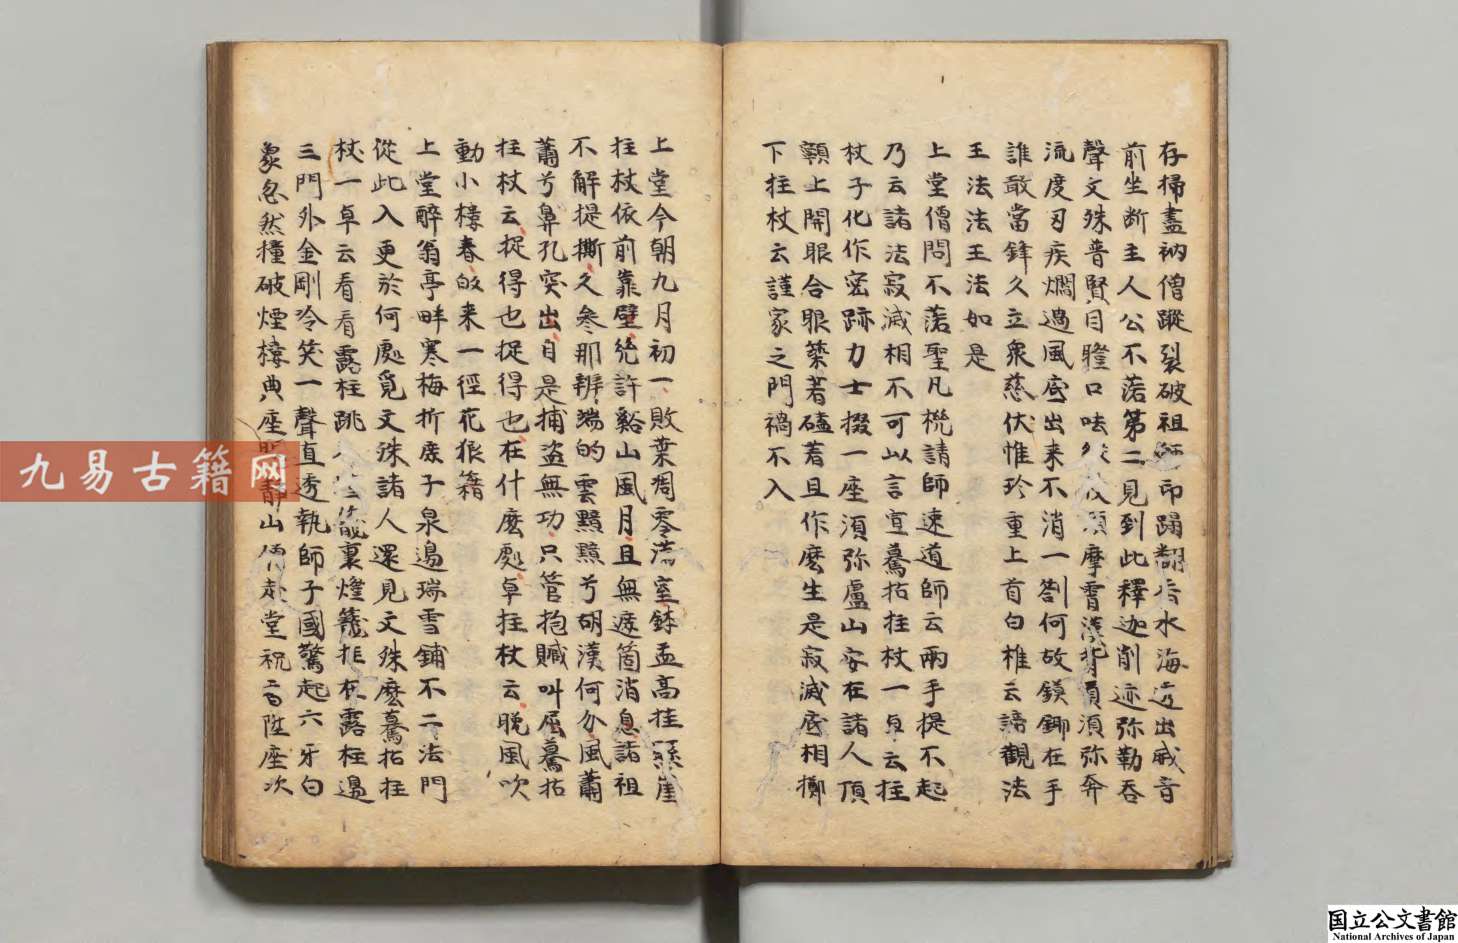 存掃盡衲僧蹤裂破祖師印蹋翻香水海迸出威音
前坐断主人公不落第二見到此釋迦削迹弥勒吞
聲文殊普賢目瞪口呿後頂摩霄漢背負須弥奔
流度刃疾焰過風底出来不消一劄何故鏌鎁在手
誰敢當鋒久立衆慈伏惟珍重上首白椎云諦觀法
王法法王法如是
上堂僧問不落聖凡機請師速道師云兩手提不起
乃云諸法寂滅相不可以言宣驀拈拄杖一卓云拄
杖子化作密跡力士掇一座須弥盧山安在諸人頂
𩕳上開眼合眼築著磕着且作麽生是寂滅底相擲
下拄杖云謹家之門禍不入
上堂今朝九月初一敗葉凋零滿室鉢盂高挂懸崖
拄杖依前靠壁縱許谿山風月且無遮箇消息諸祖
不解提撕久參那辨端的雲黯黯兮胡漢何分風蕭
蕭兮鼻孔突出自是捕盗無功只管抱贓叫屈驀拈
拄杖云捉得也捉得也在什麽處卓拄杖云晚風吹
動小樓春的来一徑花狼籍
上堂醉翁亭畔寒梅折庶子泉邊瑞雪鋪不二法門
從此入更於何處覓文殊諸人還見文殊麽驀拈拄
杖一卓云看看露柱跳入燈籠裏燈籠推在露柱邊
三門外金剛冷笑一聲直透執師子國驚起六牙白
象忽然撞破煙樓典座山僧赴堂祝高陞座次
九易古籍网
国立公文書館
National Archives of Japan